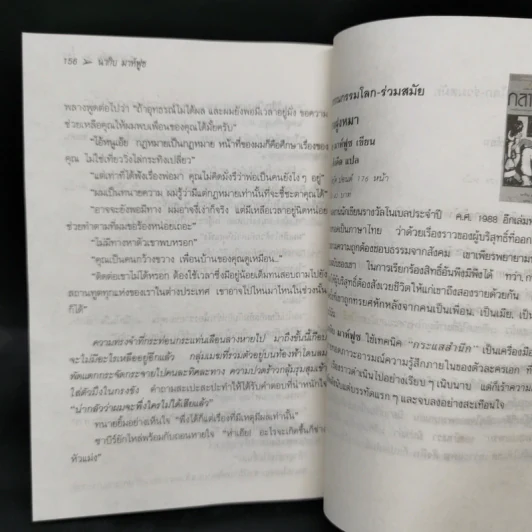 156 ➢ นากิบ มาห์ฟูซ
พลางพูดต่อไปว่า "ถ้าอุทธรณ์ไม่ได้ผล และผมยังพอมีเวลาอยู่มั่ง ขอความ
ช่วยเหลือคุณให้ผมพบเพื่อนของคุณได้มั้ยครับ"
"ไอ้หนูเอ๊ย กฎหมายเป็นกฎหมาย หน้าที่ของผมก็คือศึกษาเรื่องของ
คุณ ไม่ใช่เที่ยววิ่งไล่กระทิงเปลี่ยว"
"แต่เท่าที่ได้ฟังเรื่องพ่อมา คุณไม่คิดมั่งรึว่าพ่อเป็นคนยังไง ๆ อยู่"
"ผมเป็นทนายความ ผมรู้ว่ามีแต่กฎหมายเท่านั้นที่จะชี้ชะตาคุณได้"
"อาจจะยังพอมีทาง ผมอาจงี่เง่าก็จริง แต่มีเหลือเวลาอยู่นิดหน่อย
ช่วยทำตามที่ผมขอร้องหน่อยเถอะ"
"ไม่มีทางหาตัวเขาพบหรอก"
"คุณเป็นคนกว้างขวาง เพื่อนบ้านของคุณดูเหมือน.."
"ติดต่อเขาไม่ได้หรอก ต้องใช้เวลาซึ่งมีอยู่น้อยเต็มทนสอบถามไปยัง
สถานทูตทุกแห่งของเราในต่างประเทศ เขาอาจไปไหนมาไหนในช่วงนั้น
ก็ได้"
ความทรงจำที่กระท่อนกระแท่นเลือนลางหายไป มาถึงขั้นนี้เกือบ
จะไม่มีอะไรเหลืออยู่อีกแล้ว กลุ่มเมฆที่รวมตัวอยู่บนท้องฟ้าโดนลม
พัดแตกกระจัดกระจายไปคนละทิศละทาง ความปวดร้าวกลุ้มรุมสุมเข้า
ใส่ตัวมึงในกรงขัง คำถามสะเปะสะปะทำให้ได้รับคำตอบที่น่าหนักใจ
"น่ากลัวว่าผมจะพึ่งใครไม่ได้เสียแล้ว"
ทนายยิ้มอย่างเห็นใจ "พึ่งได้ก็แต่เรื่องที่มีเหตุมีผลเท่านั้น"
ซาบีร์ยักไหล่พร้อมกับถอนหายใจ "ท่าเฮีย! อะไรจะเกิดขึ้นก็ช่าง
หัวแม่ง"
กรรมโลก-ร่วมสมัย
มาห์ฟูซ เขียน
แปล
176 หน้า
บาท
นักเขียนรางวัลโนเบลประจำปี ค.ศ. 1988 อีกเล่ม
เป็นภาษาไทย ว่าด้วยเรื่องราวของผู้บริสุทธิ์ที่ออก
ความถูกต้องชอบธรรมจากสังคม เขาเพียรพยายาม
ของเขา ในการเรียกร้องสิทธิ์อันพึงมีพึงได้ ทว่า
ผู้บริสุทธิ์ต้องสังเวยชีวิตให้แก่เขาถึงสองรายด้วยกัน
ถูกทรยศหักหลังจากคนเป็นเพื่อน, เป็นเมีย,
มาห์ฟูซ ใช้เทคนิค "กระแสสำนึก" เป็นเครื่องมือ
สภาวะอารมณ์ความรู้สึกภายในของตัวละครเอก
เรื่องราวดำเนินไปอย่างเรียบ ๆ เนิบนาบ แต่ก็เร้าความ
แต่บรรทัดแรก ๆ และจบลงอย่างสะเทือนใจ